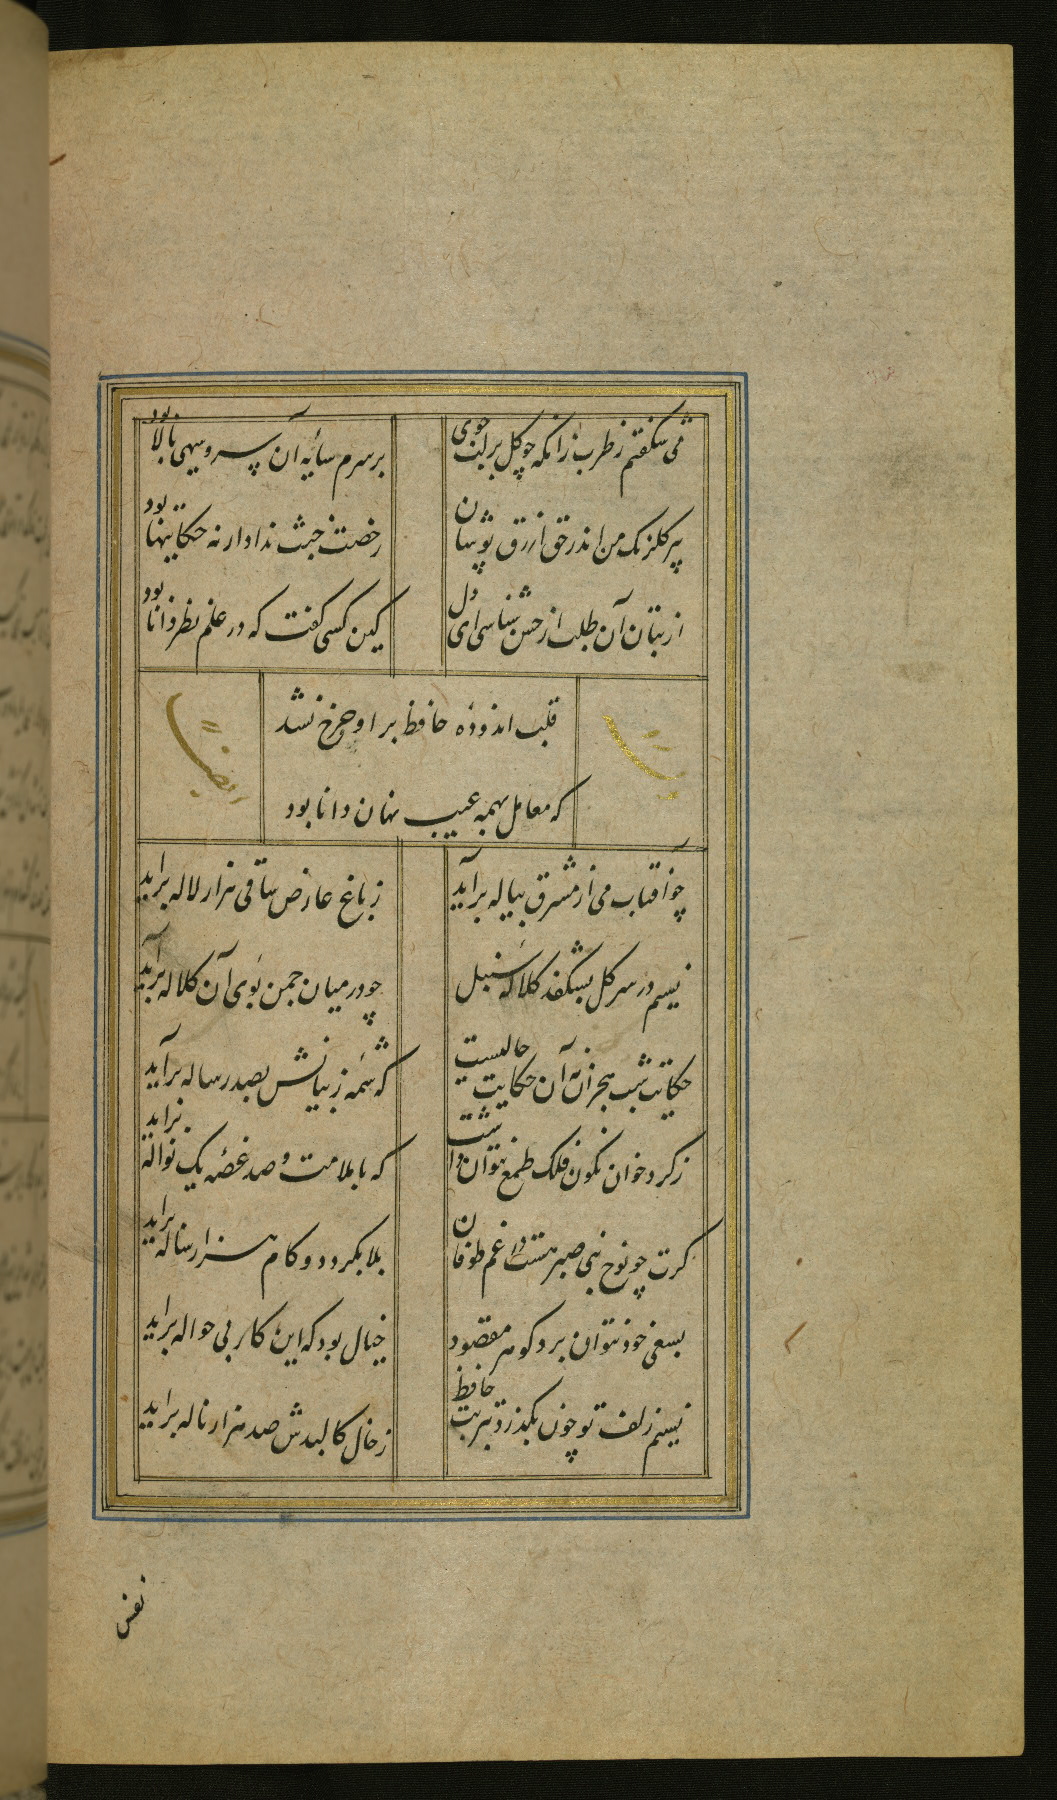 می شکفتم ز طرب زانکه چو گل بر لب جوی
بر سرم سایه آن سرو سهی بالا بود
پیر گلرنک من اندر حق ازرق پوشان
رخصت خبث نداد ار نه حکایتها بود
از بتان آن طلب از حسن شناسی ای دل
کین کسی گفت که در علم نظر دانا بود
قلب اندوده حافظ بر او خرج نشد
که معامل بهمه عیب نهان دانا بود
چو آفتاب می از مشرق پیاله برآید
ز باغ عارض ساقی هزار لاله برآید
نسیم در سر گل بشکند کلاله سنبل
چو در میان چمن بوی آن کلاله برآید
حکایت شب هجران نه آن حکایت حالیست
که شمه ز بیانش بصد رساله برآید
ز کرد خوان نکون فلک طمع نتوان داشت
که با ملامت و صد غصه یک نواله براید
کرت چو نوح نبی صبر هست در غم طوفان
بلا بکردد و کام هزار ساله براید
بسعی خود نتوان برد کوهر مقصود
خیال بود که این کار بی حواله براید
نسیم زلف تو چون بگذرد بتربت حافظ
ز خاک کالبدش صد هزار ناله براید
نفس